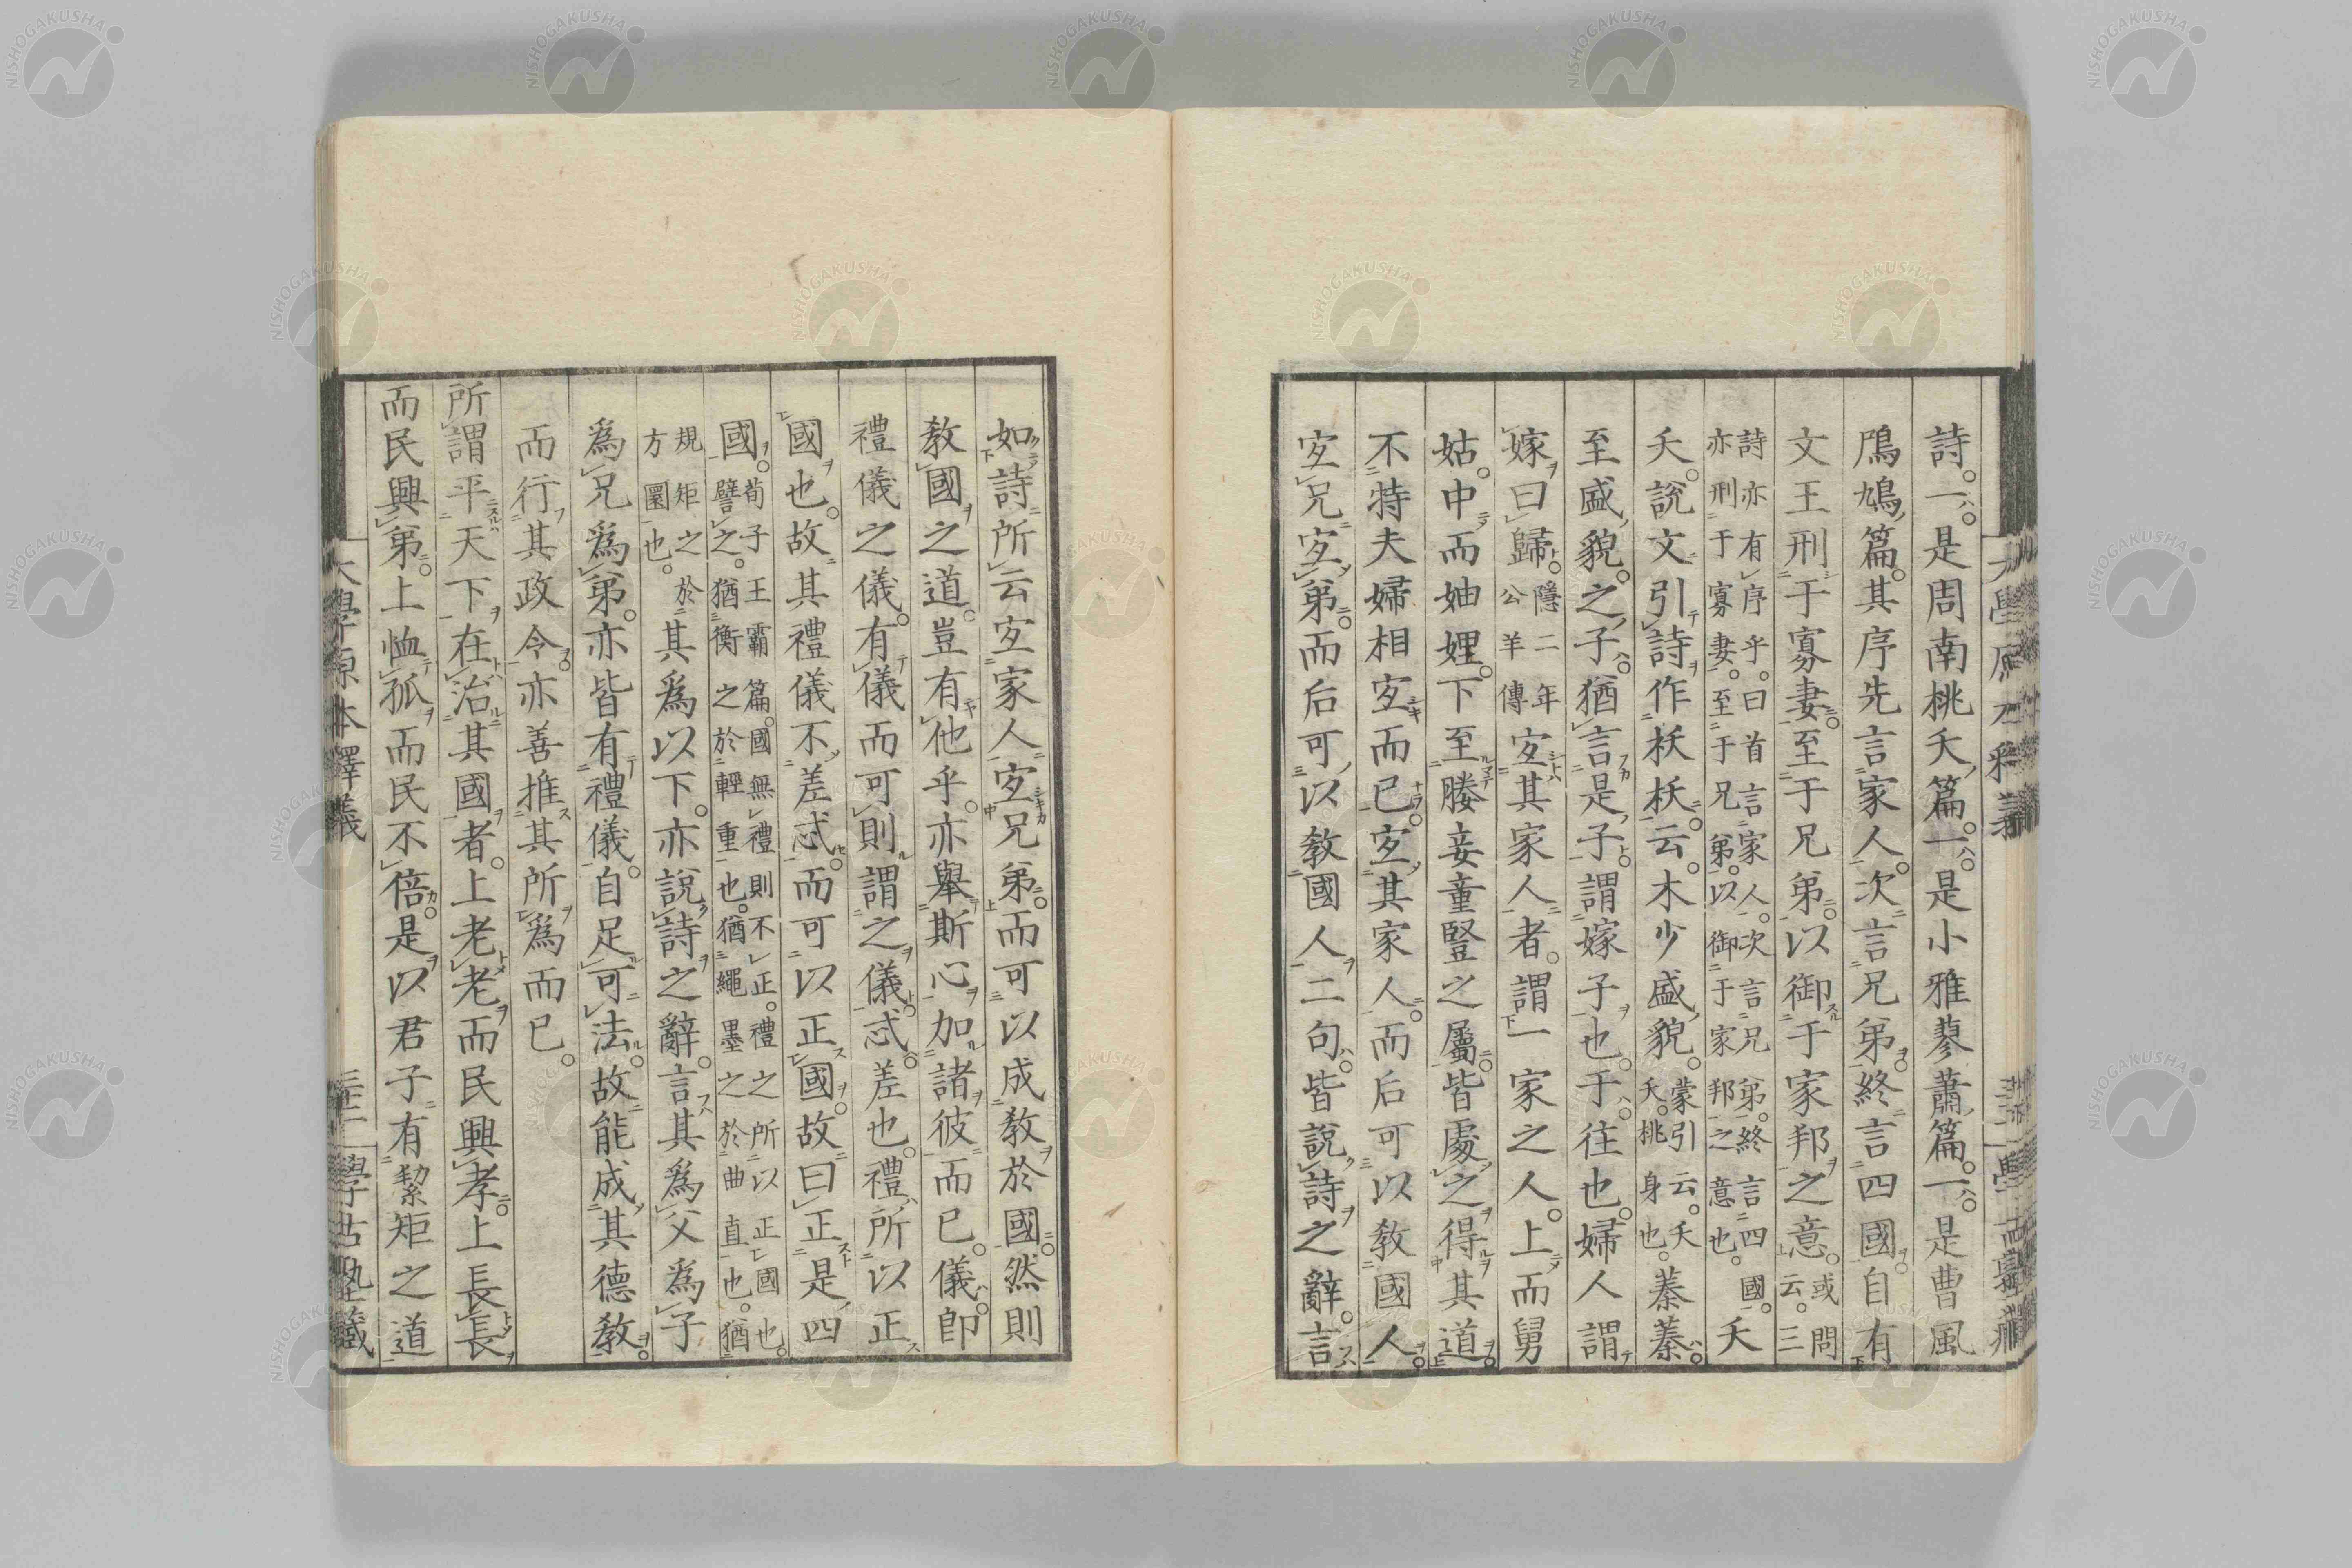 詩。一。是周南桃夭篇。一。是小雅蓼蕭篇。一。是曹風
鳲鳩篇。其序先言家人。次言兄弟。終言四國。自有
文王刑于寡妻。至于兄弟。以御于家邦之意。或問云。三
詩亦有序乎。曰首言家人。次言兄弟。終言四國。亦刑于寡妻。至于兄弟。以御于家邦之意也。夭
夭。說文引詩作枖枖。云。木少盛貌。蒙引云。夭夭。桃身也。蓁蓁。
至盛貌。之子。猶言是子。謂嫁子也。于。往也。婦人謂
嫁曰歸。隱二年公羊傳宜其家人者。謂一家之人。上而舅
姑。中而妯娌。下至媵妾童豎之屬。皆處之得其道。
不特夫婦相宜而已。宜其家人。而后可以教國人。
宜兄宜弟。而后可以教國人二句。皆說詩之辭。言
如詩所云宜家人宜兄弟。而可以成教於國。然則
教國之道。豈有他乎。亦舉斯心加諸彼而已。儀。即
禮儀之儀。有儀而可則謂之儀。忒。差也。禮所以正
國也。故其禮儀不差忒。而可以正國。故曰正是四
國。荀子王霸篇。國無禮則不正。禮之所以正國也。譬之。猶衡之於輕重也。猶繩墨之於曲直也。猶
規矩之於方圜也。其為以下。亦說詩之辭。言其為父為子
為兄為弟。亦皆有禮儀。自足可法。故能成其德教。
而行其政令。亦善推其所為而已。
所謂平天下在治其國者。上老老而民興孝。上長長
而民興弟。上恤孤而民不倍。是以君子有絜矩之道
大學原本釋義
學古塾藏